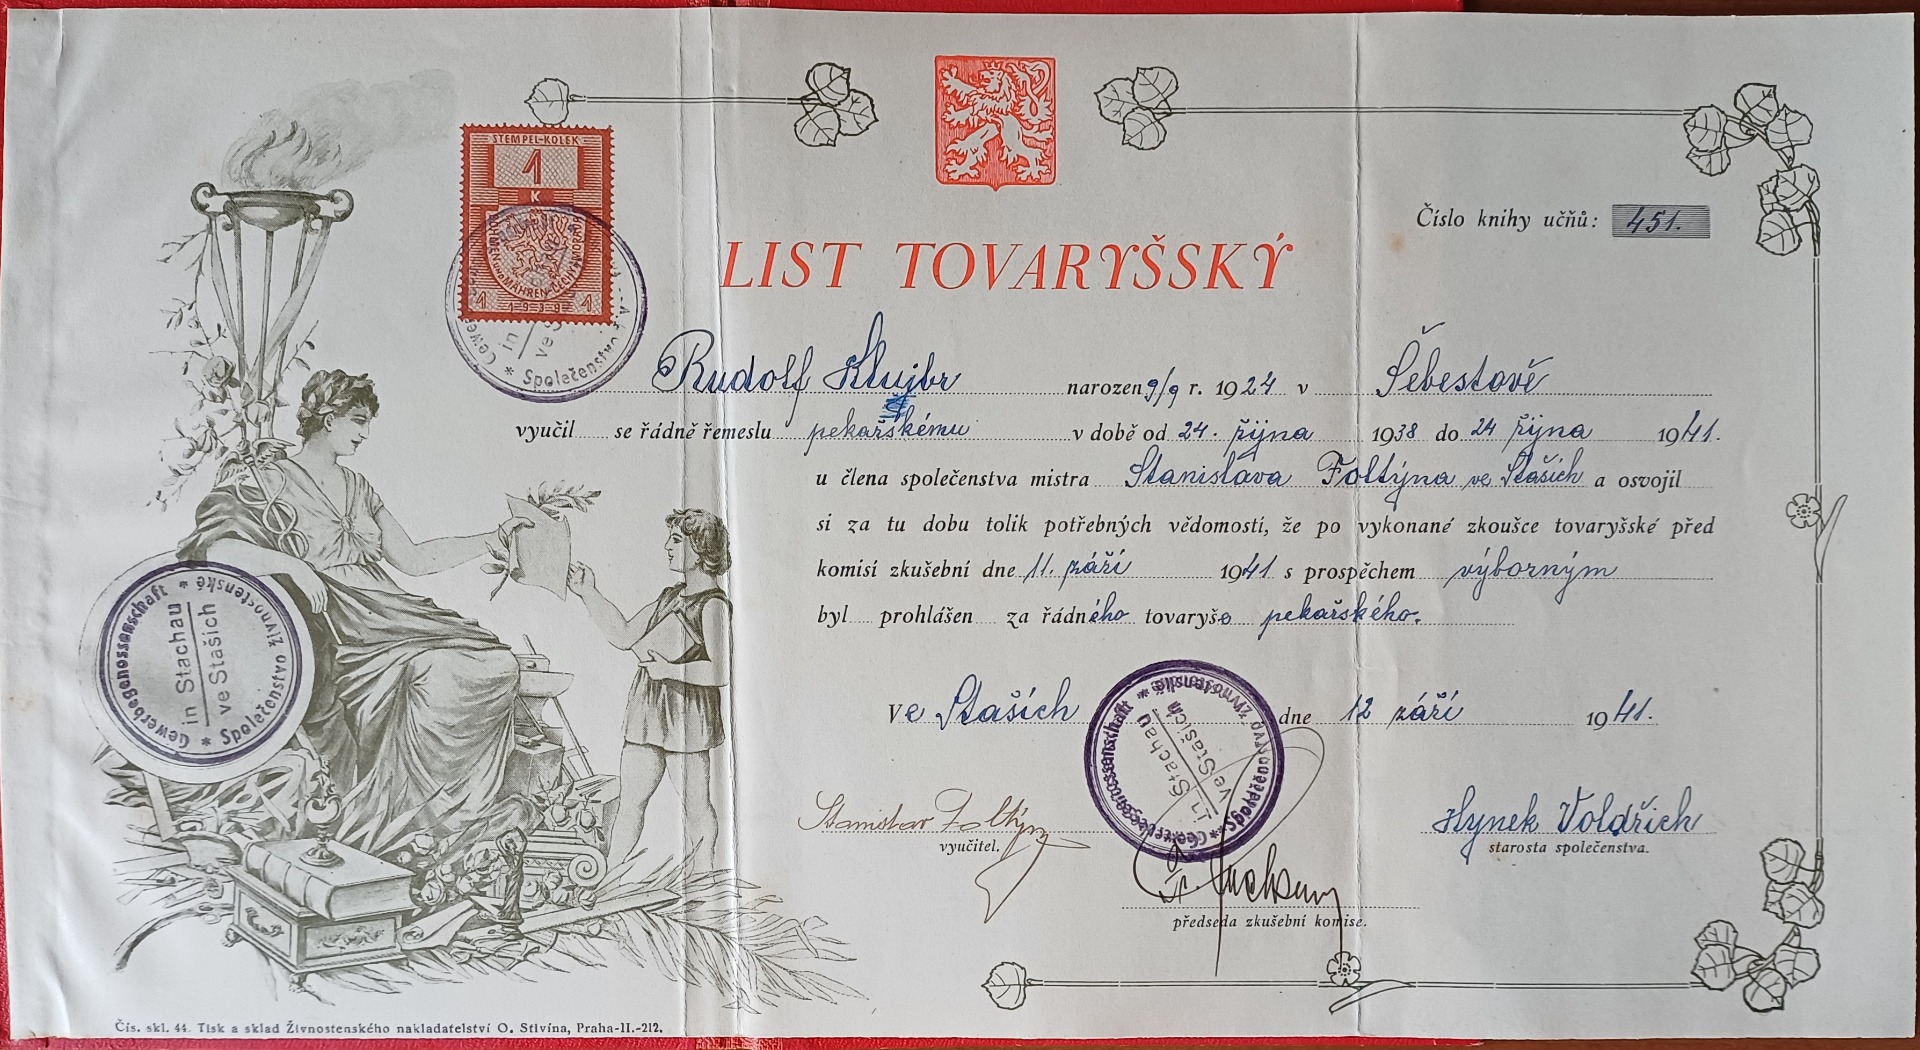 STEMPEL-KOLEK
1
K
BÖHMEN UND MÄHREN-ČECHY A MORAVA
1 1939 1
Společenstvo
in
ve
Číslo knihy učňů: 451.
LIST TOVARYŠSKÝ
Rudolf Klujbr narozen 9/9 r. 1924 v Šebestově
vyučil se řádně řemeslu pekařskému v době od 24. října 1938 do 24 října 1941.
u člena společenstva mistra Stanislava Foltýna ve Stašich a osvojil
si za tu dobu tolik potřebných vědomostí, že po vykonané zkoušce tovaryšské před
komisí zkušební dne 11. září 1941 s prospěchem výborným
byl prohlášen za řádného tovaryše pekařského.
Gewerbegenossenschaft
in Stachau
ve Stašich
* Společenstvo živnostenské *
Ve Stašich dne 12 září 1941.
Gewerbegenossenschaft
in Stachau
ve Stašich
* Společenstvo živnostenské *
Stanislav Foltýn
vyučitel.
Hynek Voldřich
starosta společenstva.
předseda zkušební komise.
Čís. skl. 44. Tisk a sklad Živnostenského nakladatelství O. Stivína, Praha-II.-212.